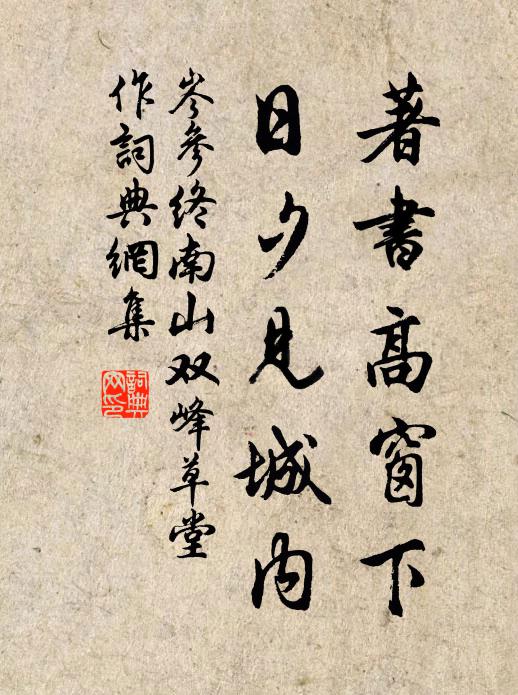 著書高窗下
日夕見城內
岑參終南山双峰草堂
作詞典網集
詞典网印